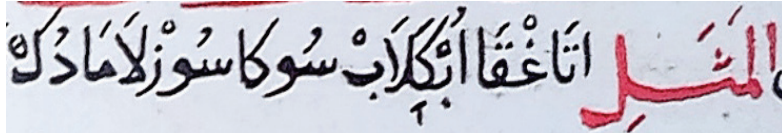 المَثَلِ اتَاغْقَا اُبْكَلَابْ سُوكَا سُوْزلَامَادُكْ